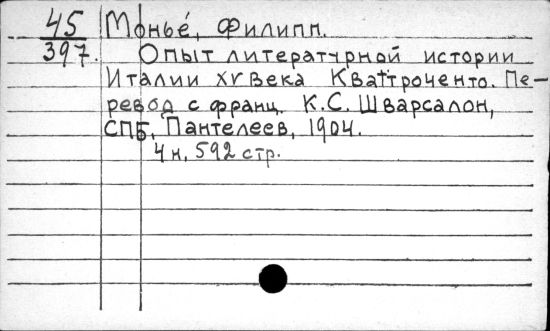 45 Монье́, Филипп.
397. Опыт литературной истории
Италии XV века Кваттроченто. Пе-
ревод с франц. К.С. Шварсалон,
СПБ, Пантелеев, 1904.
4 н, 592 стр.